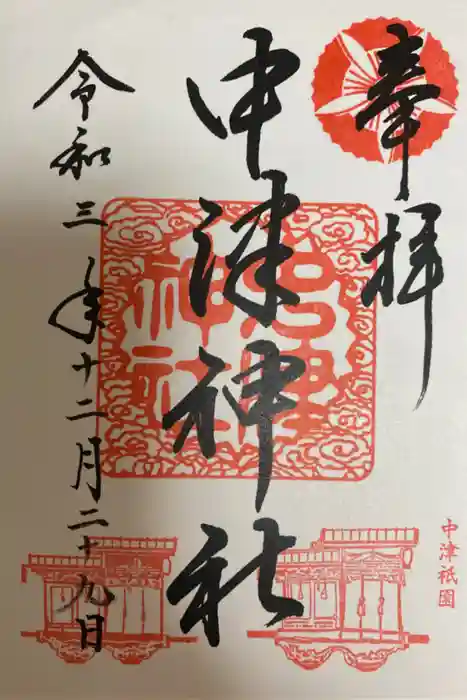 奉拝
中津神社
令和三年十二月二十九日
中津神社
中津祇園